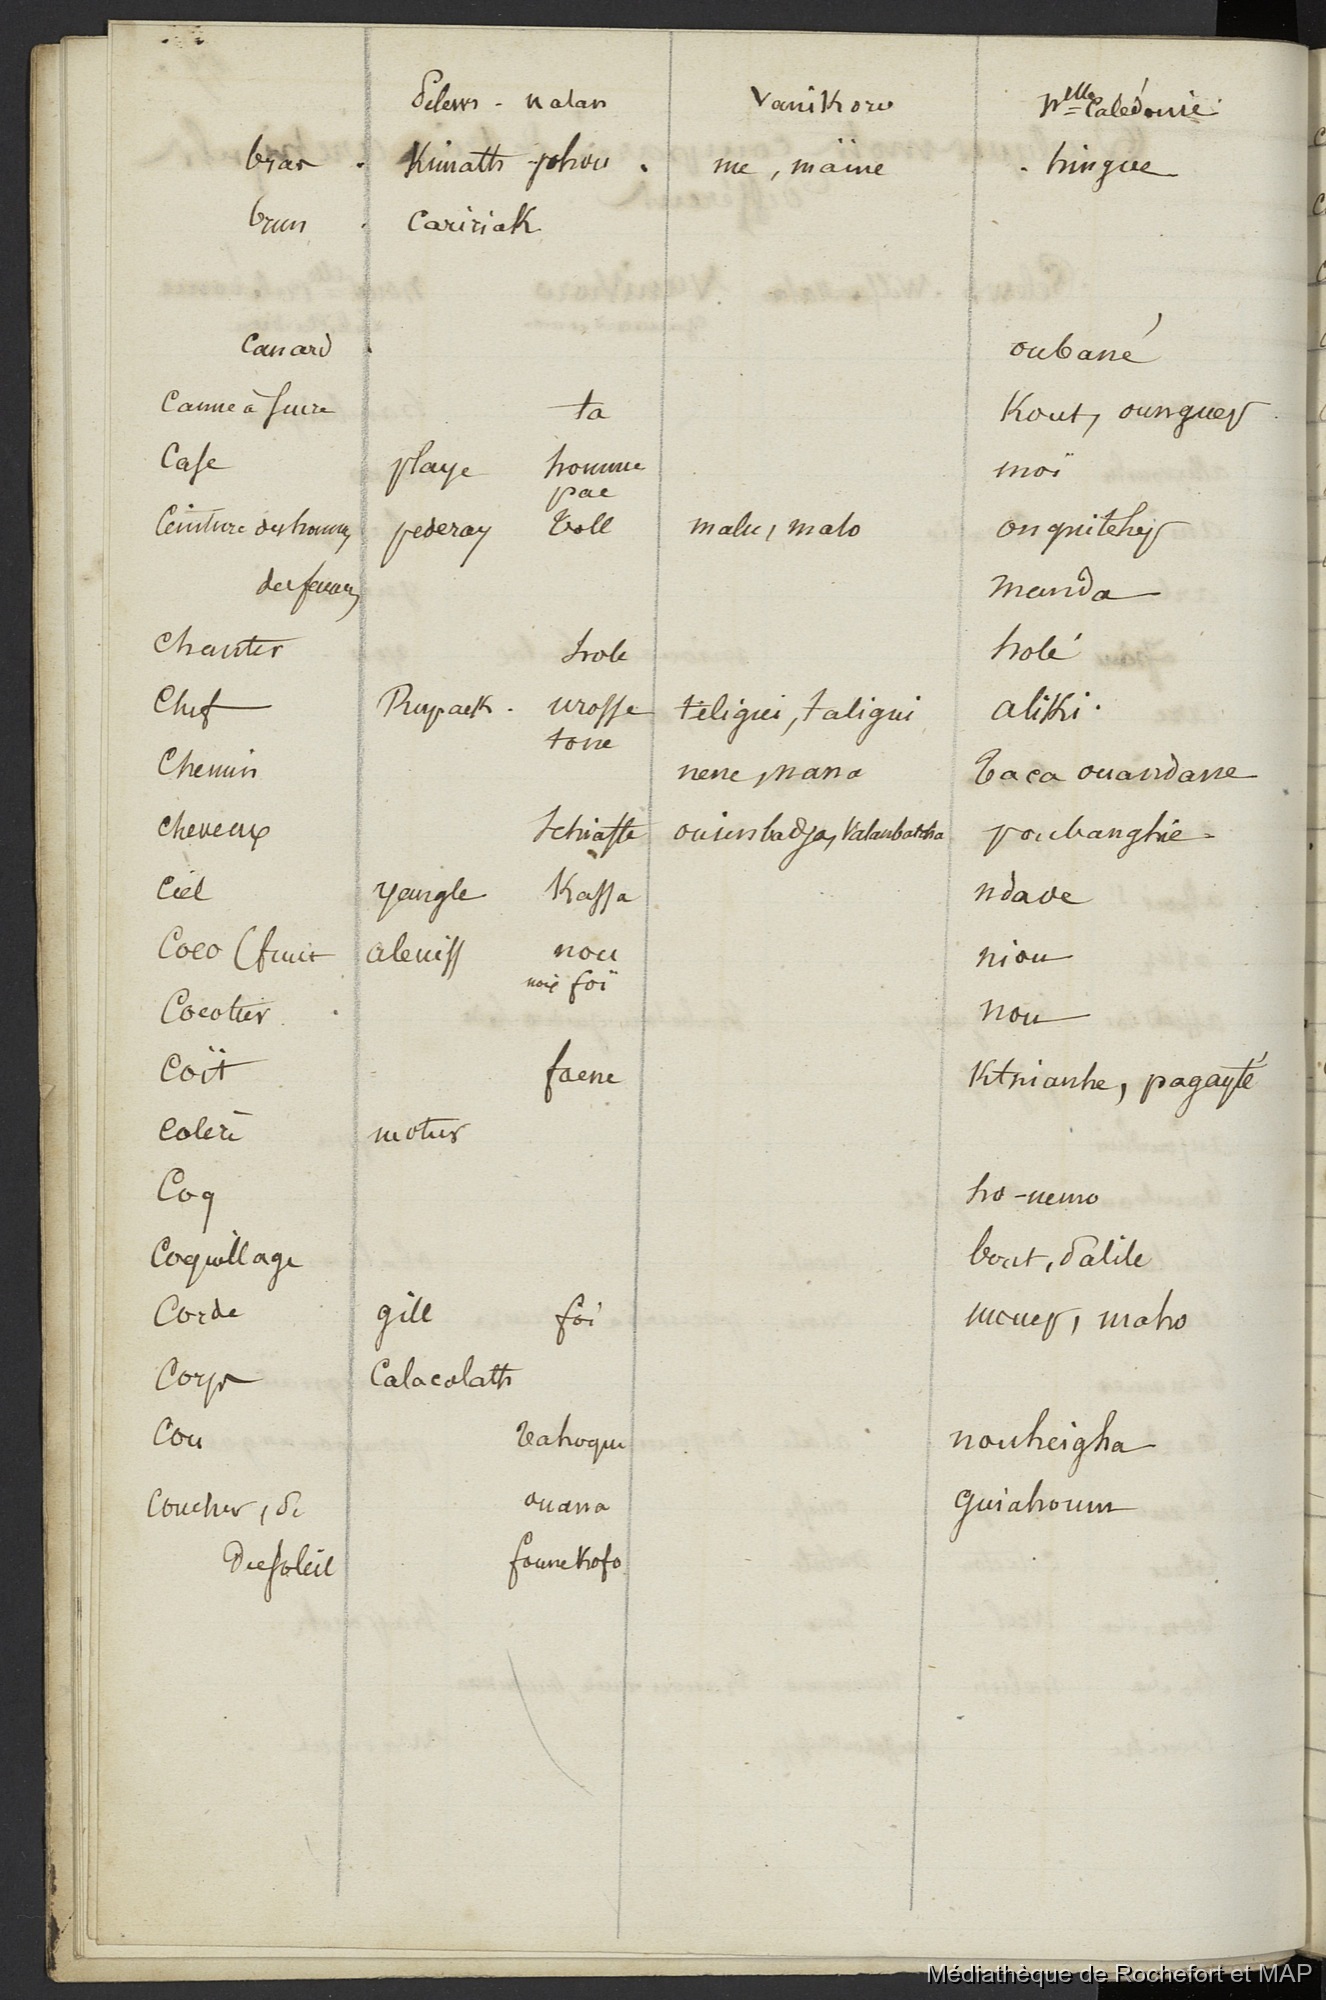 Pelews - ualan Vanikoro Nlle Calédonie
bras - Kimath - pohou . me, maïne - hingue
brun - Caririak
Canard - oubané
Canne à sucre ta Kout, ounguep
Case playe homme moï
pae
Ceinture des hommes pederay Toll malu, malo onguitchep
des femmes manda
Chanter hole holé
Chef Rupack - urosse teligui, taligui aliki
tone
Chemin nene, nana Taca ouandane
Cheveux Schiaffe ouiunbadja, Valanbatcha poubanghie
Ciel yangle Kassa ndaoe
Coco (fruit aleuiss nou niou
noix foï
Cocotier nou
Coït faene Ktnianhe, pagayté
Colère motur
Coq ho-nemo
Coquillage bout, dalile
Corde gill foi mouep, maho
Corps Calacolath
Cou Tahogu nouheigha
Coucher, se ouana guiahoum
Du soleil founekofo
Médiathèque de Rochefort et MAP